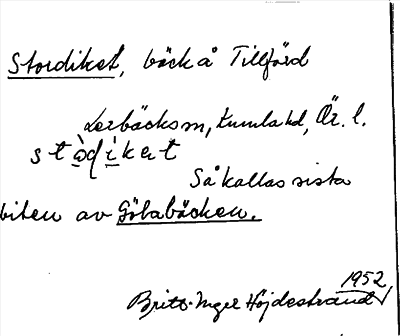 Stordiket, bäck å Tillförd
Lerbäcks sn, Kumla hd, Ör. l.
stòdìkət
Så kallas sista
biten av Göbabäcken.
1952
Britt-Inger Höjdestrand